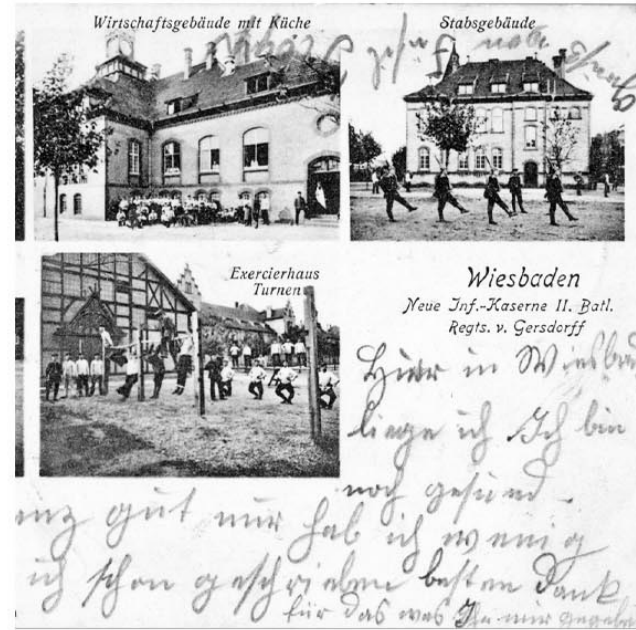 Wirtschaftsgebäude mit Küche
Stabsgebäude
Exercierhaus
Turnen
Wiesbaden
Neue Inf.-Kaserne II. Batl.
Regts. v. Gersdorff
Hier in Wiesba
liege ich Ich bin
noch gesund
gut nur hab ich wenig
ich schon geschrieben besten Dank
für das was Ihr mir gegebe